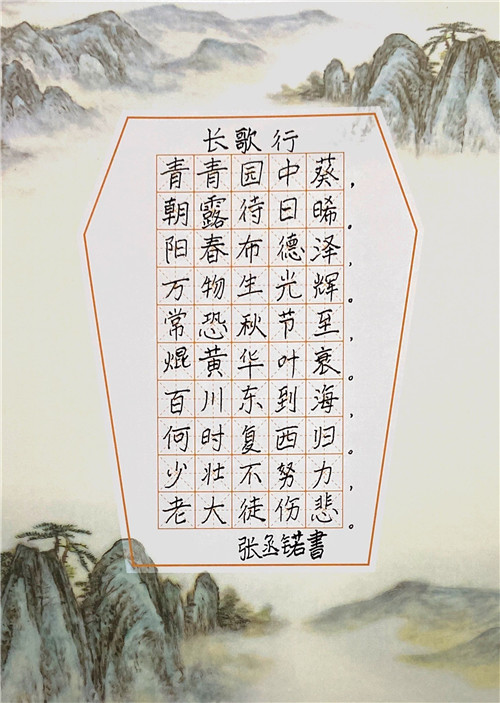 长歌行
青青园中葵，
朝露待日晞。
阳春布德泽，
万物生光辉。
常恐秋节至，
焜黄华叶衰。
百川东到海，
何时复西归。
少壮不努力，
老大徒伤悲。
张丞锘書